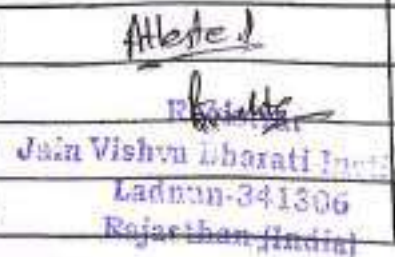 Attested
Jain Vishva Bharati Insti
Ladnun-341306
Rajasthan (India)